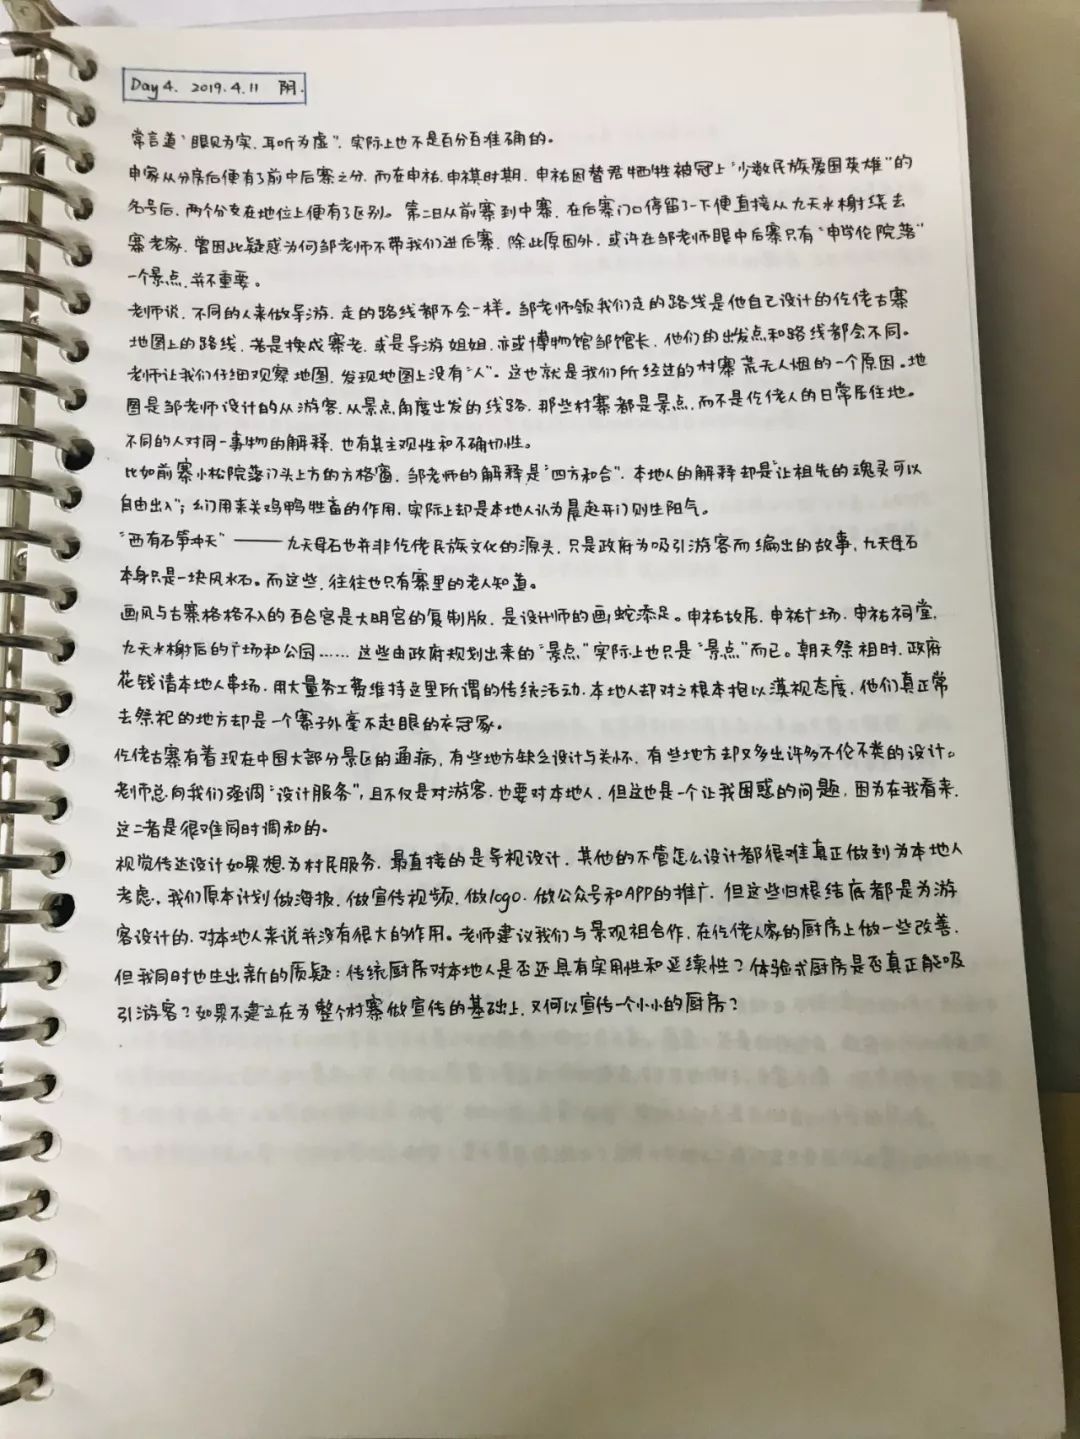 Day 4. 2019.4.11 阴.
常言道"眼见为实、耳听为虚",实际上也不是百分百准确的。
申家从分房后便有了前中后寨之分,而在申祐、申祺时期,申祐因替君牺牲被冠上"少数民族爱国英雄"的
名号后,两个分支在地位上便有了区别。第二日从前寨到中寨,在后寨门口停留了一下便直接从九天水榭绕去
寨老家,曾因此疑惑为何邹老师不带我们进后寨,除此原因外,或许在邹老师眼中后寨只有"申学伦院落"
一个景点,并不重要。
老师说,不同的人来做导游,走的路线都不会一样。邹老师领我们走的路线是他自己设计的仡佬古寨
地图上的路线,若是换成寨老,或是导游姐姐,亦或博物馆邹馆长,他们的出发点和路线都会不同。
老师让我们仔细观察地图,发现地图上没有"人"。这也就是我们所经过的村寨荒无人烟的一个原因。地
图是邹老师设计的从游客、从景点角度出发的线路,那些村寨都是景点,而不是仡佬人的日常居住地。
不同的人对同一事物的解释,也有其主观性和不确切性。
比如前寨小松院落门头上方的方格窗,邹老师的解释是"四方和合",本地人的解释却是"让祖先的魂灵可以
自由出入";幺门用来关鸡鸭牲畜的作用,实际上却是本地人认为晨起开门则生阳气。
"西有石笋冲天"——九天母石也并非仡佬民族文化的源头,只是政府为吸引游客而编出的故事,九天母石
本身只是一块风水石。而这些,往往也只有寨里的老人知道。
画风与古寨格格不入的百合宫是大明宫的复制版,是设计师的画蛇添足。申祐故居、申祐广场、申祐祠堂,
九天水榭后的广场和公园……这些由政府规划出来的"景点"实际上也只是"景点"而已。朝天祭祖时,政府
花钱请本地人串场,用大量务工费维持这里所谓的传统活动,本地人却对之根本抱以漠视态度,他们真正常
去祭祀的地方却是一个寨子外毫不起眼的衣冠冢。
仡佬古寨有着现在中国大部分景区的通病,有些地方缺乏设计与关怀,有些地方却又多出许多不伦不类的设计。
老师总向我们强调"设计服务",且不仅是对游客,也要对本地人,但这也是一个让我困惑的问题,因为在我看来,
这二者是很难同时调和的。
视觉传达设计如果想为村民服务,最直接的是导视设计,其他的不管怎么设计都很难真正做到为本地人
考虑,我们原本计划做海报、做宣传视频、做logo、做公众号和APP的推广,但这些归根结底都是为游
客设计的,对本地人来说并没有很大的作用。老师建议我们与景观组合作,在仡佬人家的厨房上做一些改善,
但我同时也生出新的质疑:传统厨房对本地人是否还具有实用性和延续性?体验式厨房是否真正能吸
引游客?如果不建立在为整个村寨做宣传的基础上,又何以宣传一个小小的厨房?